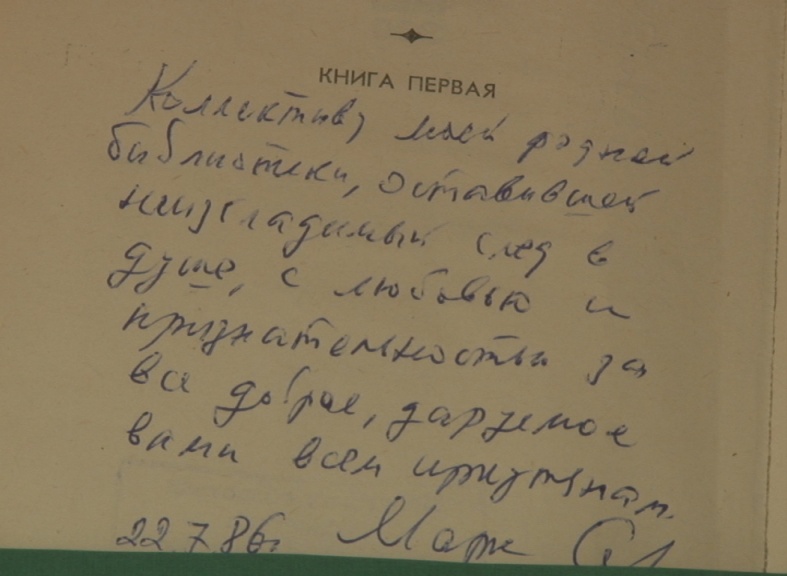 КНИГА ПЕРВАЯ
Коллективу моей родной
библиотеки, оставившей
неизгладимый след в
душе, с любовью и
признательностью за
все доброе, даруемое
вами всем иркутянам.
22.7.86г. Марк